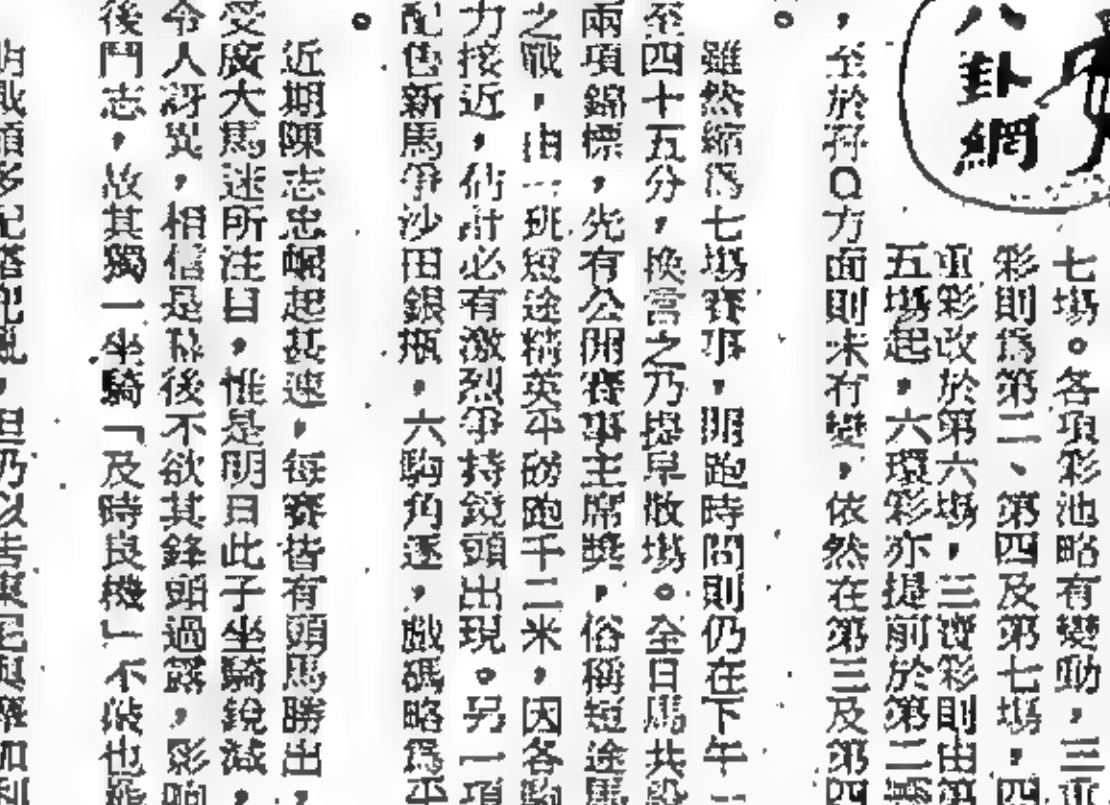 八卦網
七場。各項彩池略有變動,三重
彩則爲第二、第四及第七場,四
重彩改於第六場,三寶彩則由第
五場起,六環彩亦提前於第二
,至於孖Q方面則未有變,依然在第三及第四
。
雖然縮爲七場賽事,開跑時間則仍在下午一
至四十五分,換言之乃提早散場。全日馬共設
兩項錦標,先有公開賽事主席獎,俗稱短途馬
之戰,由一班短途精英平磅跑千二米,因各駒
力接近,估計必有激烈爭持鏡頭出現。另一項
配售新馬爭沙田銀瓶,六駒角逐,戲碼略爲平
。
近期陳志忠崛起甚速,每賽皆有頭馬勝出,
受廣大馬迷所注目,惟是明日此子坐騎銳減,
令人訝異,相信是幕後不欲其鋒頭過露,影响
後鬥志,故其獨一坐騎「及時良機」不候也
但仍以吉